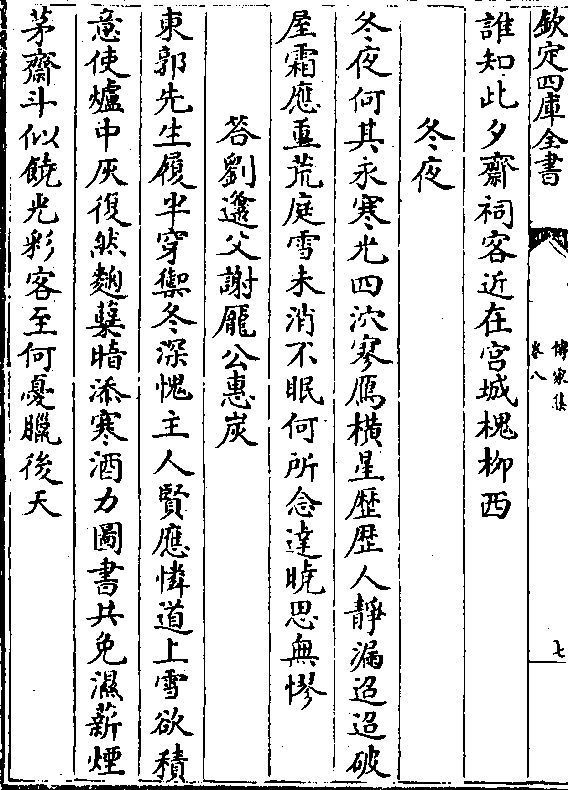 欽定四庫全書
傳家集
卷八
七
誰知此夕齋祠客近在宮城槐柳西
冬夜
冬夜何其永寒光四泬寥鴈橫星歴歴人靜漏迢迢破
屋霜應重荒庭雪未消不眠何所念達曉思無憀
答劉邍父謝龎公惠炭
東郭先生履半穿禦冬深愧主人賢應憐道上雪欲積
意使爐中灰復然麴蘖暗添寒酒力圖書共免濕薪煙
茅齋斗似饒光彩客至何憂臘後天